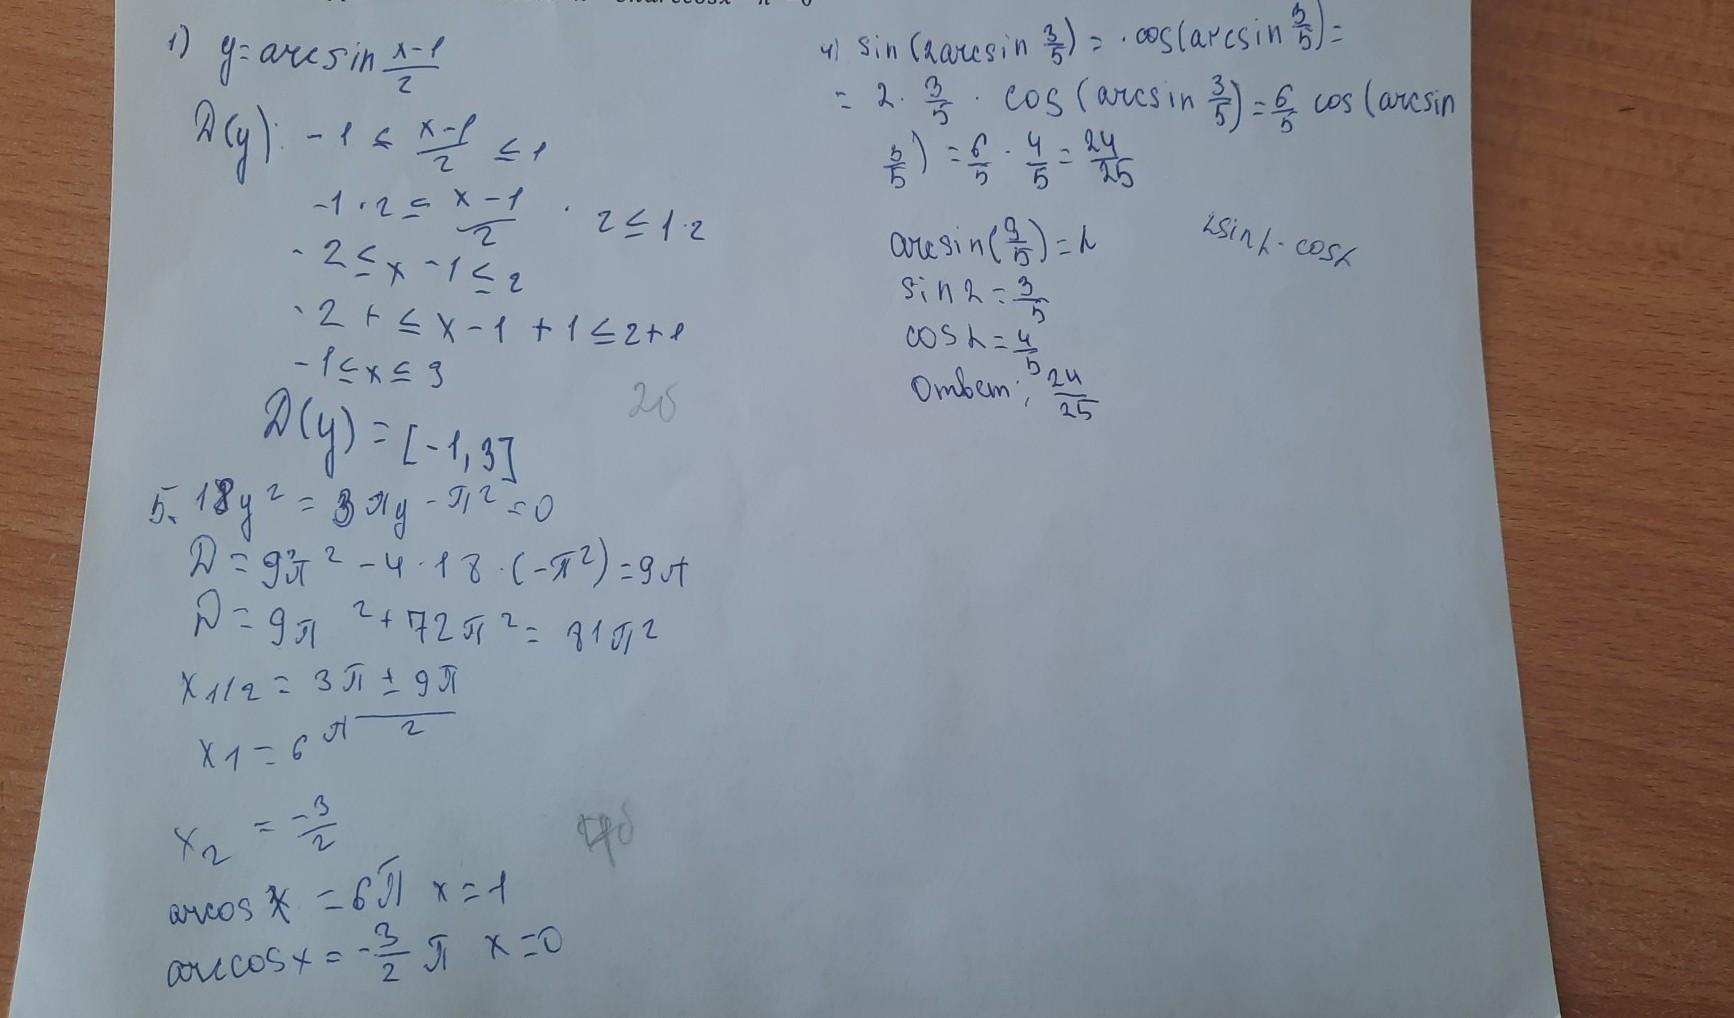 1) y=arcsin x-1/2
D(y): -1 ≤ x-1/2 ≤ 1
-1·2 ≤ x-1/2 · 2 ≤ 1·2
-2 ≤ x -1 ≤ 2
-2 + ≤ x-1 +1 ≤ 2+1
-1 ≤ x ≤ 3
2б
D(y) = [-1,3]
5. 18y² = 3πy - π² = 0
D = 9π² - 4·18·(-π²) = 9π
D = 9π² + 72π² = 81π²
x1/2 = 3π ± 9π/2
x1 = 6π
x2 = -3/2
arcos x = 6π x=1
arccosx = -3/2 π x=0
4) sin(2arcsin 3/5) = ·cos(arcsin 3/5) =
= 2· 3/5 · cos(arcsin 3/5) = 6/5 cos(arcsin
3/5) = 6/5 · 4/5 = 24/25
arcsin(3/5) = α
2sinα·cosα
sinα = 3/5
cosα = 4/5
Ответ: 24/25